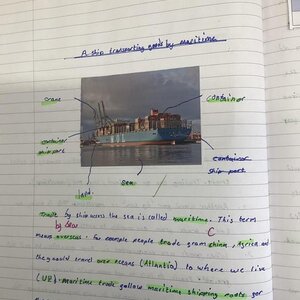 A ship transporting goods by maritime
crane
container
container
ship port
container
ship port
sea
land
Trade by ship across the sea is called maritime. This term
by sea C
means overseas. For example people trade from china, Africa and
they would travel over oceans (Atlantic) to where we live
(UK). Maritime trade follows maritime shipping routes for